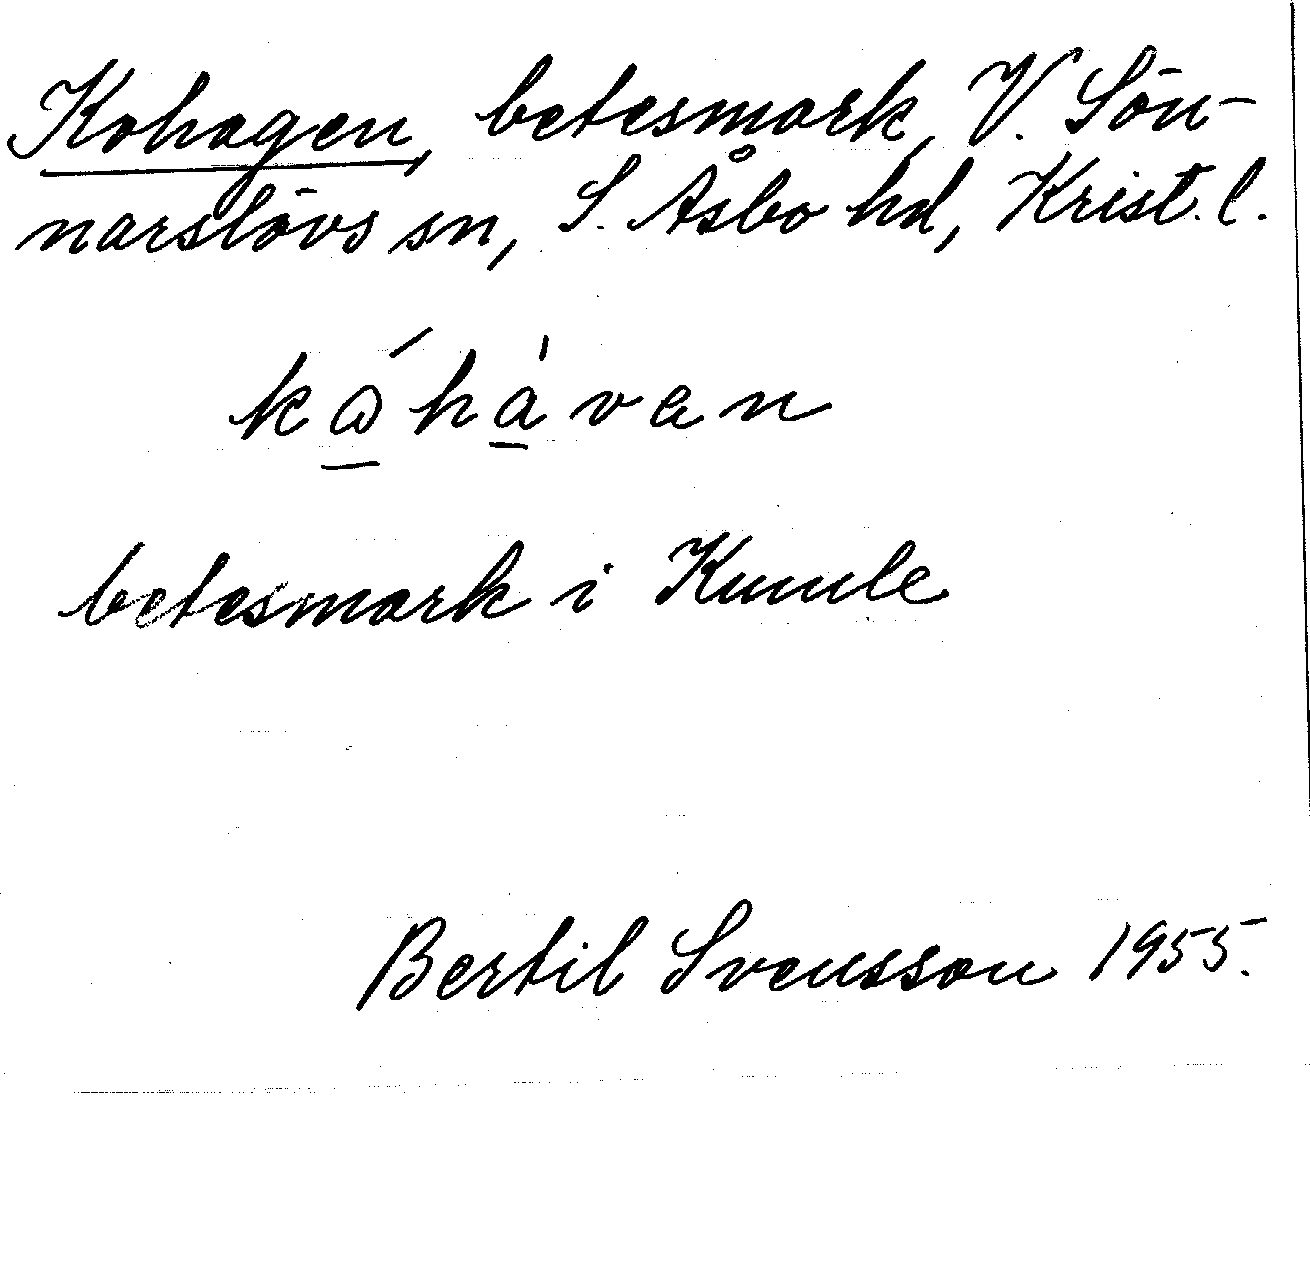 Kohagen, betesmark, V. Sön-
narslövs sn, S. Åsbo hd, Krist. l.
betesmark i Kumle
Bertil Svensson 1955.